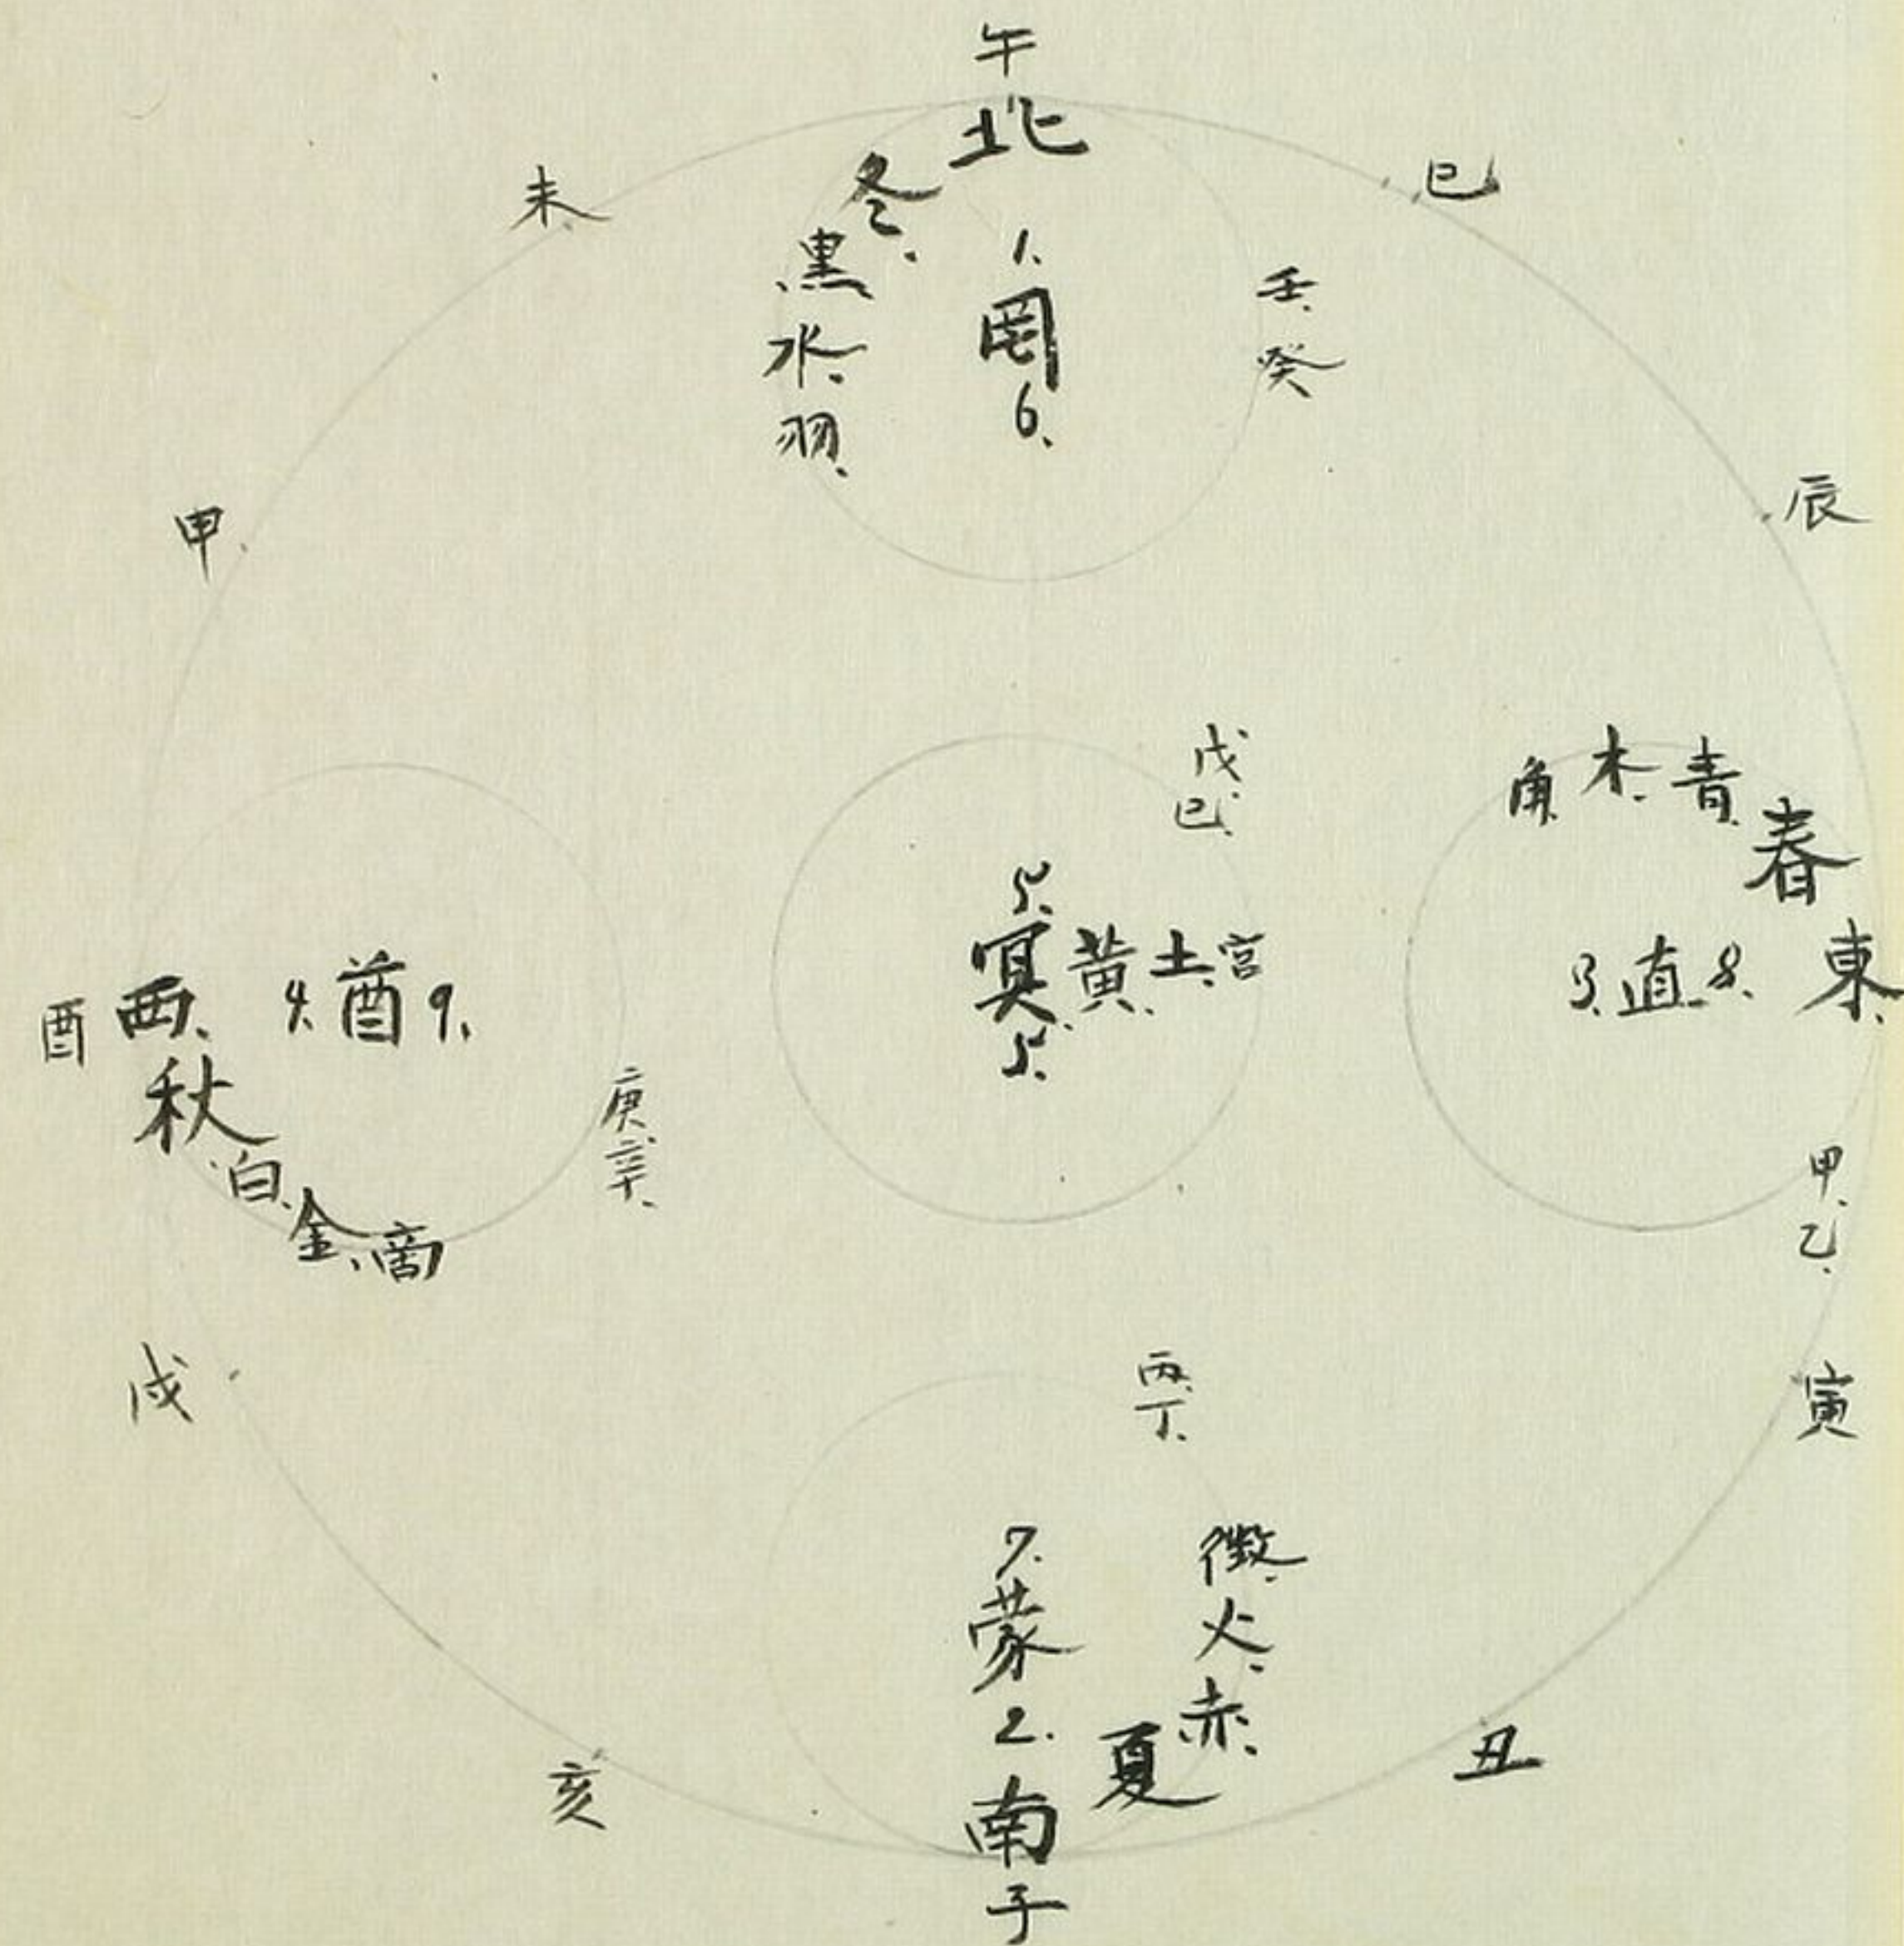 午
北
冬、
黒、
水、
羽、
1.
罔
6.
壬、
癸
未
巳
申
辰
戊、
己、
5.
冥、黄、土、宮
5.
角、木、青、
春
3.直.8.
東、
甲、
乙、
酉
西、
4.酋9.
秋、
白、
金、商
庚
辛、
戌
寅
丙、
丁、
7.
蒙
2.
南
子
徴、
火、
赤、
夏
亥
丑